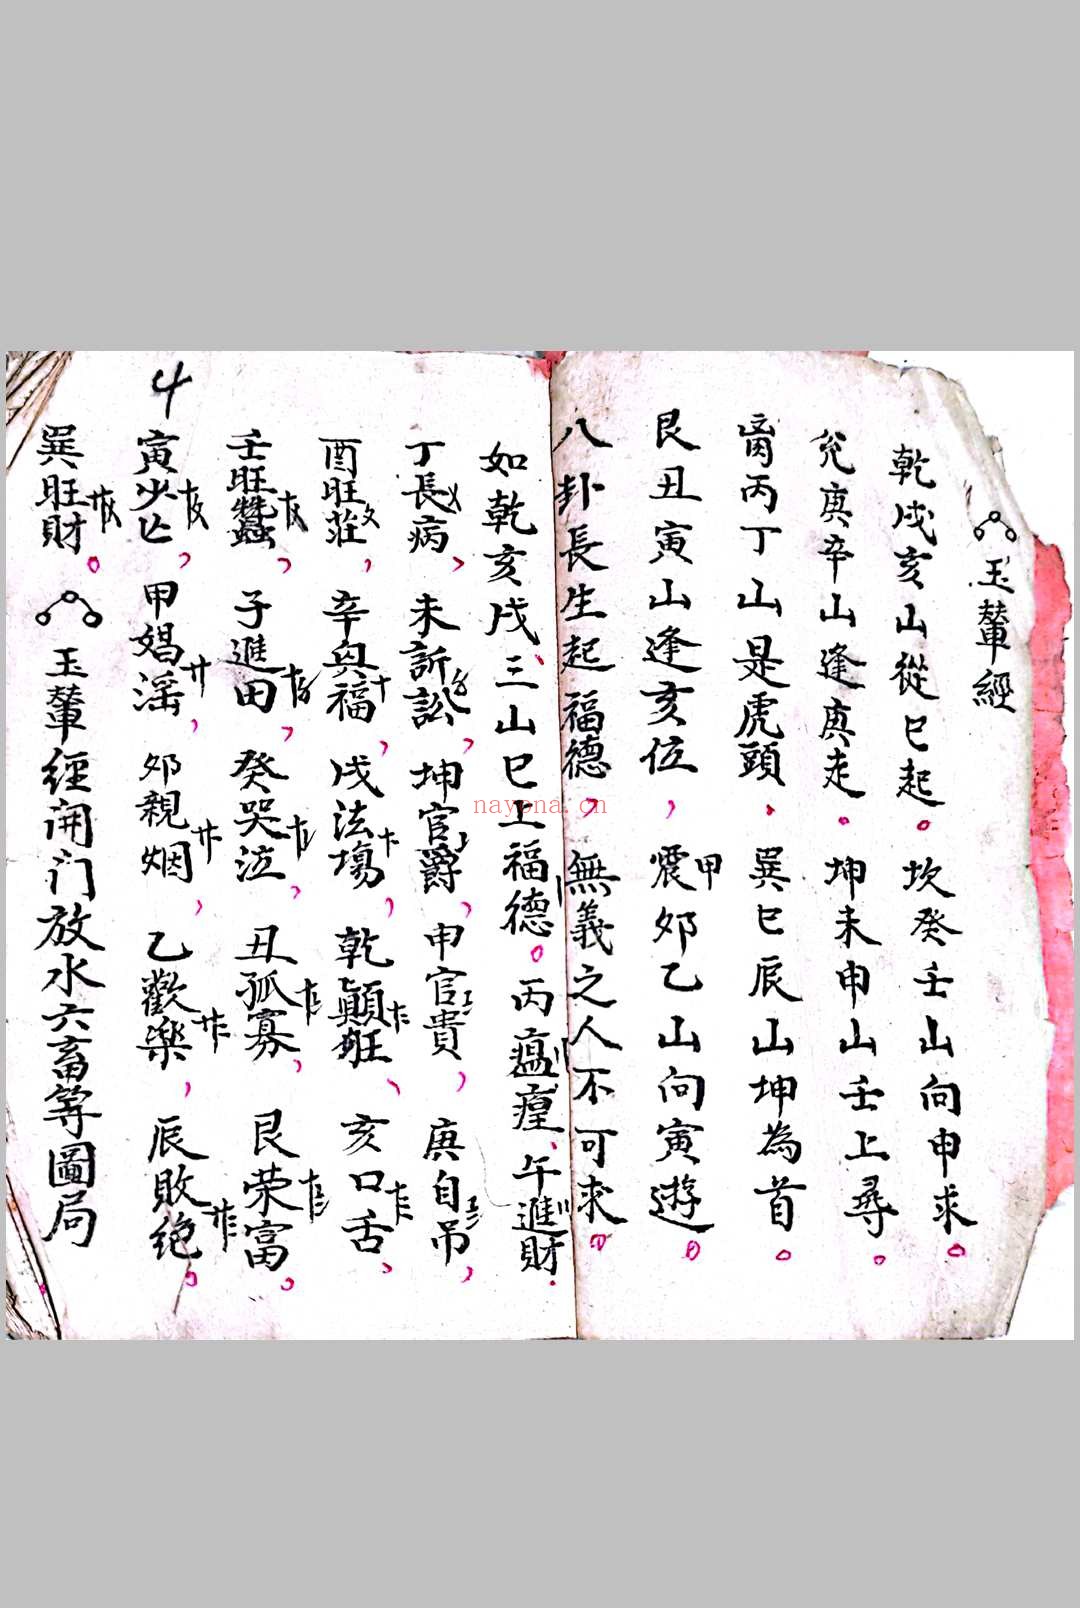 玉輦經
乾戌亥山從巳起。坎癸壬山向申求。
兌庚辛山逢庚走。坤未申山壬上尋。
离丙丁山是虎頭，巽巳辰山坤為首。
艮丑寅山逢亥位，震甲卯乙山向寅遊。
八卦長生起福德，無義之人不可求。
如乾亥戌、三山巳上福德一。丙瘟𤯝二、午進財三、
丁長病，未訴訟，坤官爵，申官貴，庚自吊，
酉旺莊，辛與福十，戌法場，乾顛狂、亥口舌、
壬旺蠶，子進田，癸哭泣，丑孤寡，艮荣富。
寅少亡，甲娼淫，卯親烟，乙歡樂，辰敗绝。
巽旺財。 玉輦經開门放水六畜等圖局
4
nayona.cn